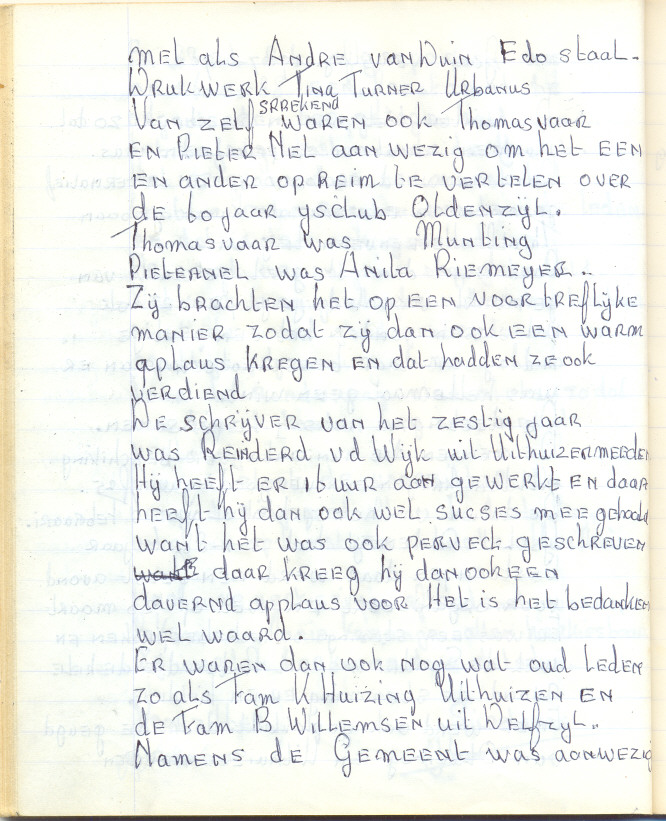 met als Andre van Duin Edo staal.
Drukwerk Tina Turner Urbanus
Van zelf sprekend waren ook Thomasvaar
en Pieter Nel aan wezig om het een
en ander op reim te vertelen over
de 60 jaar ysclub Oldenzijl.
Thomasvaar was Munting
Pieternel was Anita Riemeyer.
Zij brachten het op een voortreflijke
manier zodat zij dan ook een warm
aplaus kregen en dat hadden ze ook
verdiend
De schrijver van het zestig jaar
was Reinderd vd Wijk uit Uithuizermeeden
Hij heeft er 16 uur aan gewerkt en daar
heeft hij dan ook wel sucses mee gehaald
want het was ook perveck geschreven
daar kreeg hij dan ook een
davernd applaus voor Het is het bedanken
wel waard.
Er waren dan ook nog wat oud leden
zo als Fam K Huizing Uithuizen en
de Fam B Willemsen uit Delfzyl.
Namens de Gemeent was aanwezig